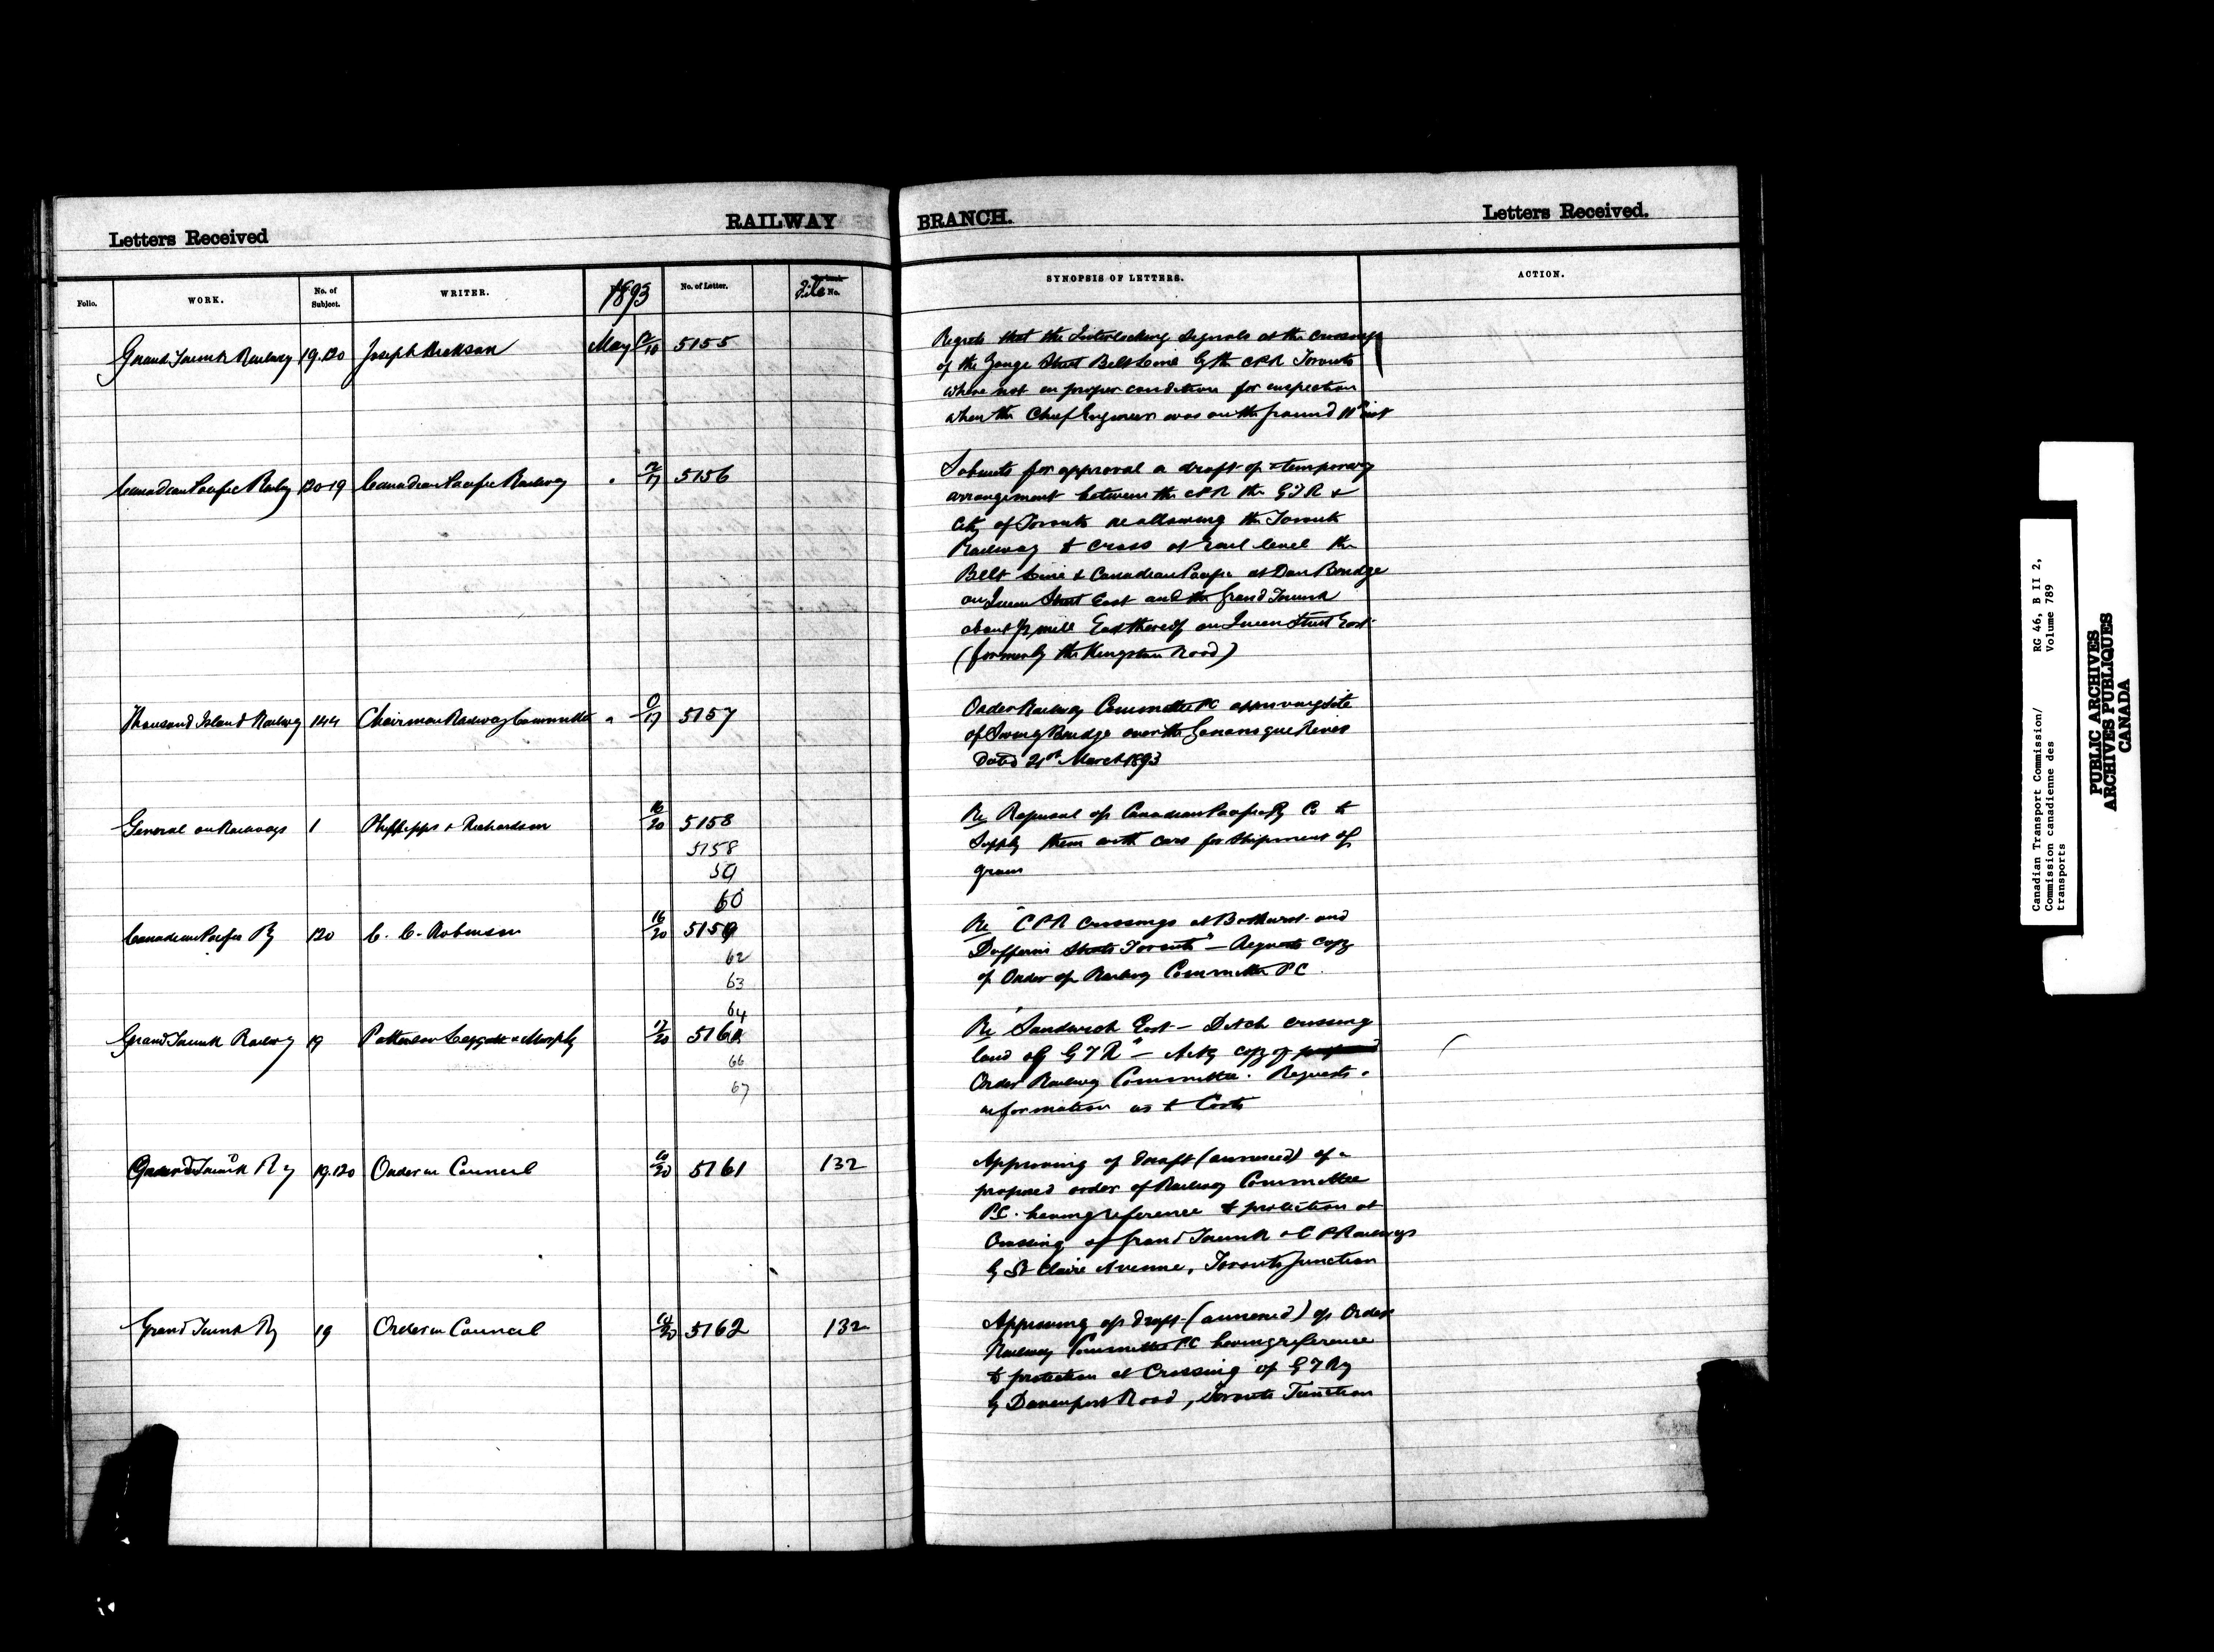 RAILWAY BRANCH.
Letters Received
Letters Received.
Folio. WORK. No. of Subject. WRITER. 1893 No. of Letter. File No. SYNOPSIS OF LETTERS. ACTION.
Grand Trunk Railway 19.120 Joseph Hickson May 10 5155
Regrets that the Interlocking signals at the crossings
of the Yonge Street Belt Line by the CPR Toronto
where not in proper condition for inspection
when the Chief Engineer was on the ground 11th inst
Canadian Pacific Railwy 120-19 Canadian Pacific Railway " 12/17 5156
Submits for approval a draft of temporary
arrangement between the CPR the GTR &
City of Toronto re allowing the Toronto
Railway to cross at rail level the
Belt Line & Canadian Pacific at Don Bridge
on Queen Street East and the Grand Trunk
about ½ mile East thereof on Queen Street East
(formerly the Kingston Road)
Thousand Island Railway 144 Chairman Railway Committee " 17 5157
Order Railway Committee PC approving site
of Swing Bridge over the Gananoque River
Dated 21st March 1893
General on Railways 1 & Richardson 16/20 5158
5158
59
60
Re Refusal of Canadian Pacific Ry Co to
Supply them with cars for shipment of
grain
Canadian Pacific Ry 120 C. C. Robinson 16/20 5159
62
63
64
Re "CPR crossings at Bathurst and
Dufferin Streets Toronto" — Requests copy
of Order of Railway Committee PC.
Grand Trunk Railway 19 Patterson Leggatt & Murphy 17/20 5160
66
67
Re "Sandwich East — Ditch crossing
land of GTR" — Ackg copy of
Order Railway Committee. Requests
information as to Costs
Grand Trunk Ry 19.120 Order in Council 20 5161 132
Approving of draft (annexed) of a
proposed order of Railway Committee
PC. having reference to protection at
Crossing of Grand Trunk & C P Railways
by St Claire Avenue, Toronto Junction
Grand Trunk Ry 19 Order in Council 20 5162 132
Approving of draft (annexed) of Order
Railway Committee PC having reference
to protection at Crossing of G T Ry
by Davenport Road, Toronto Junction
Canadian Transport Commission/ RG 46, B II 2,
Commission canadienne des Volume 789
transports
PUBLIC ARCHIVES
ARCHIVES PUBLIQUES
CANADA